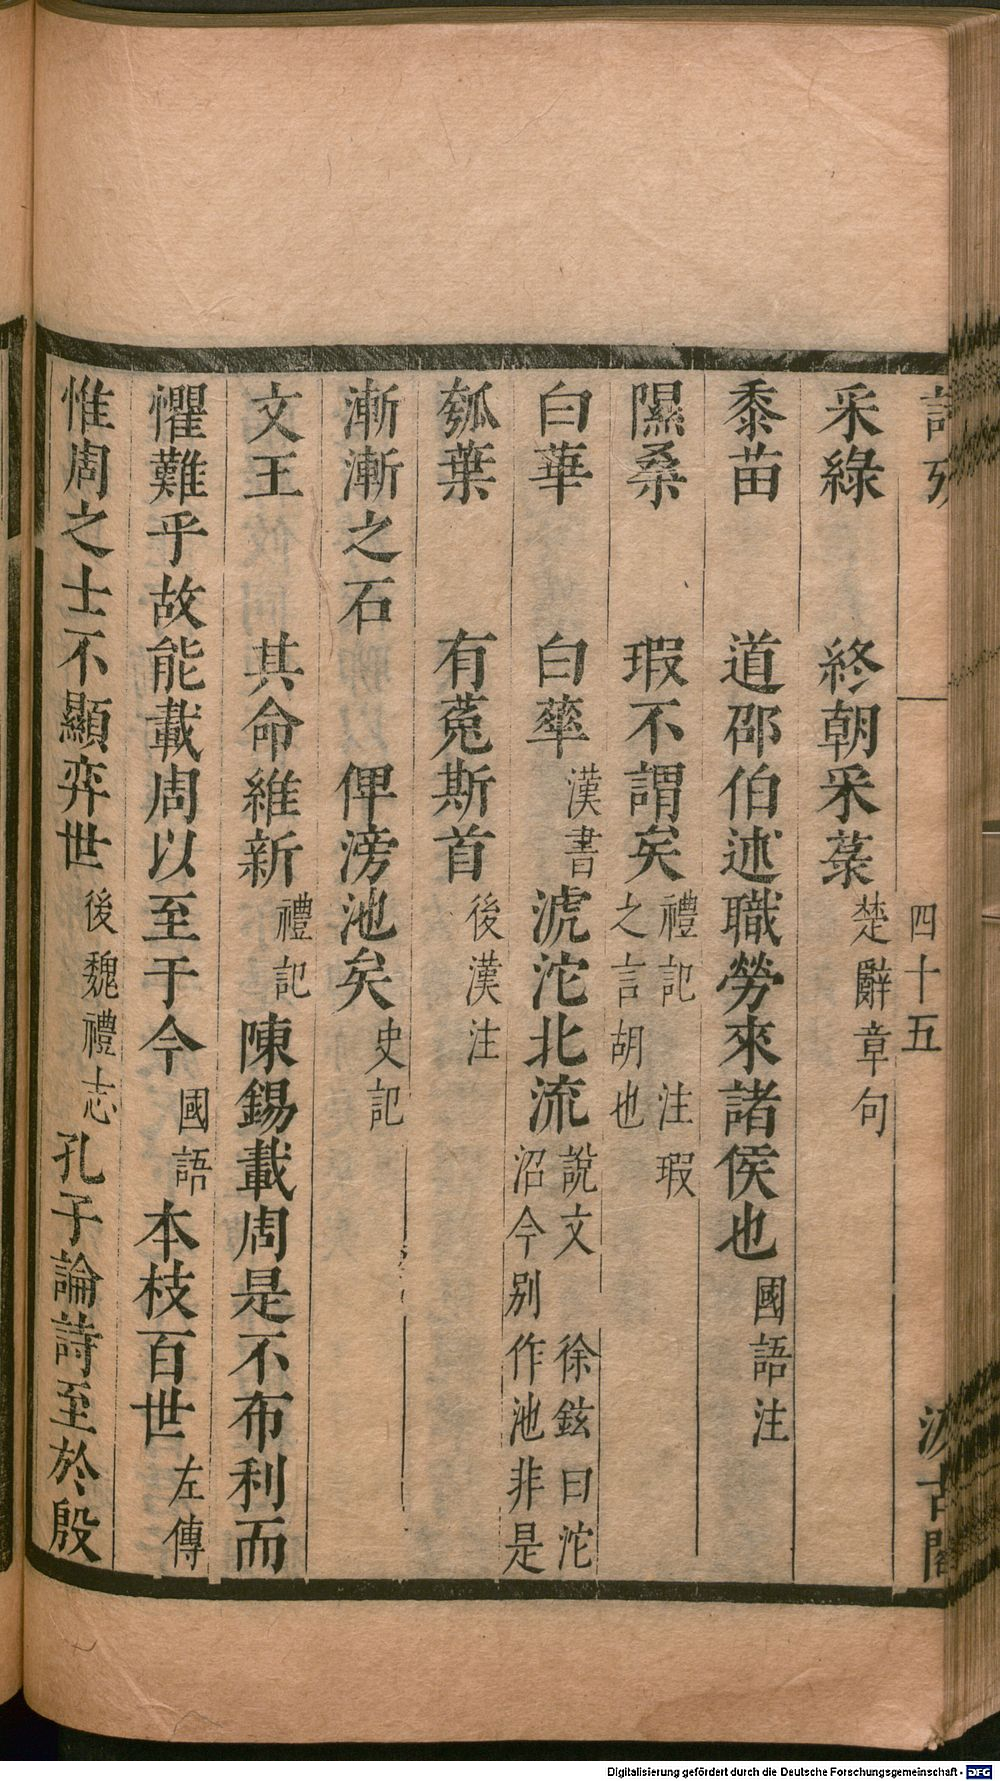 詩攷 四十五 汲古閣
采綠 終朝采菉楚辭章句
黍苗 道邵伯述職勞來諸侯也國語注
隰桑 瑕不謂矣禮記注瑕之言胡也
白華 白華漢書淲沱北流說文徐鉉曰沱沼今别作池非是
瓠葉 有菟斯首後漢注
漸漸之石 俾滂池矣史記
文王 其命維新禮記陳錫載周是不布利而
懼難乎故能載周以至于今國語本枝百世左傳
惟周之士不顯弈世後魏禮志孔子論詩至於殷
Digitalisierung gefördert durch die Deutsche Forschungsgemeinschaft - DFG